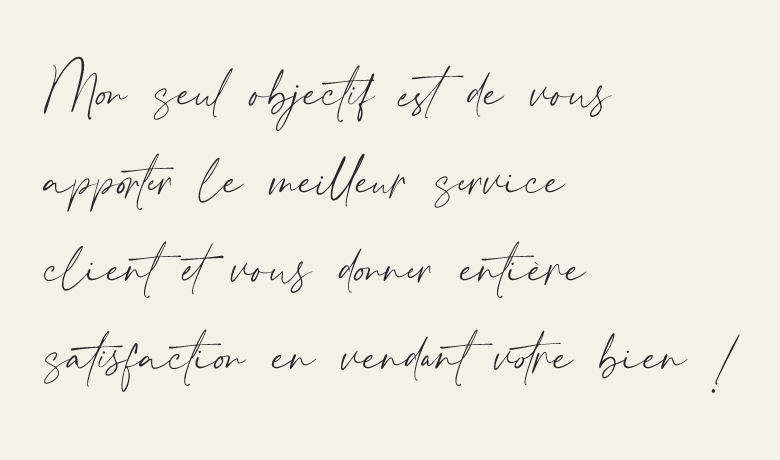 Mon seul objectif est de vous
apporter le meilleur service
client et vous donner entière
satisfaction en vendant votre bien !